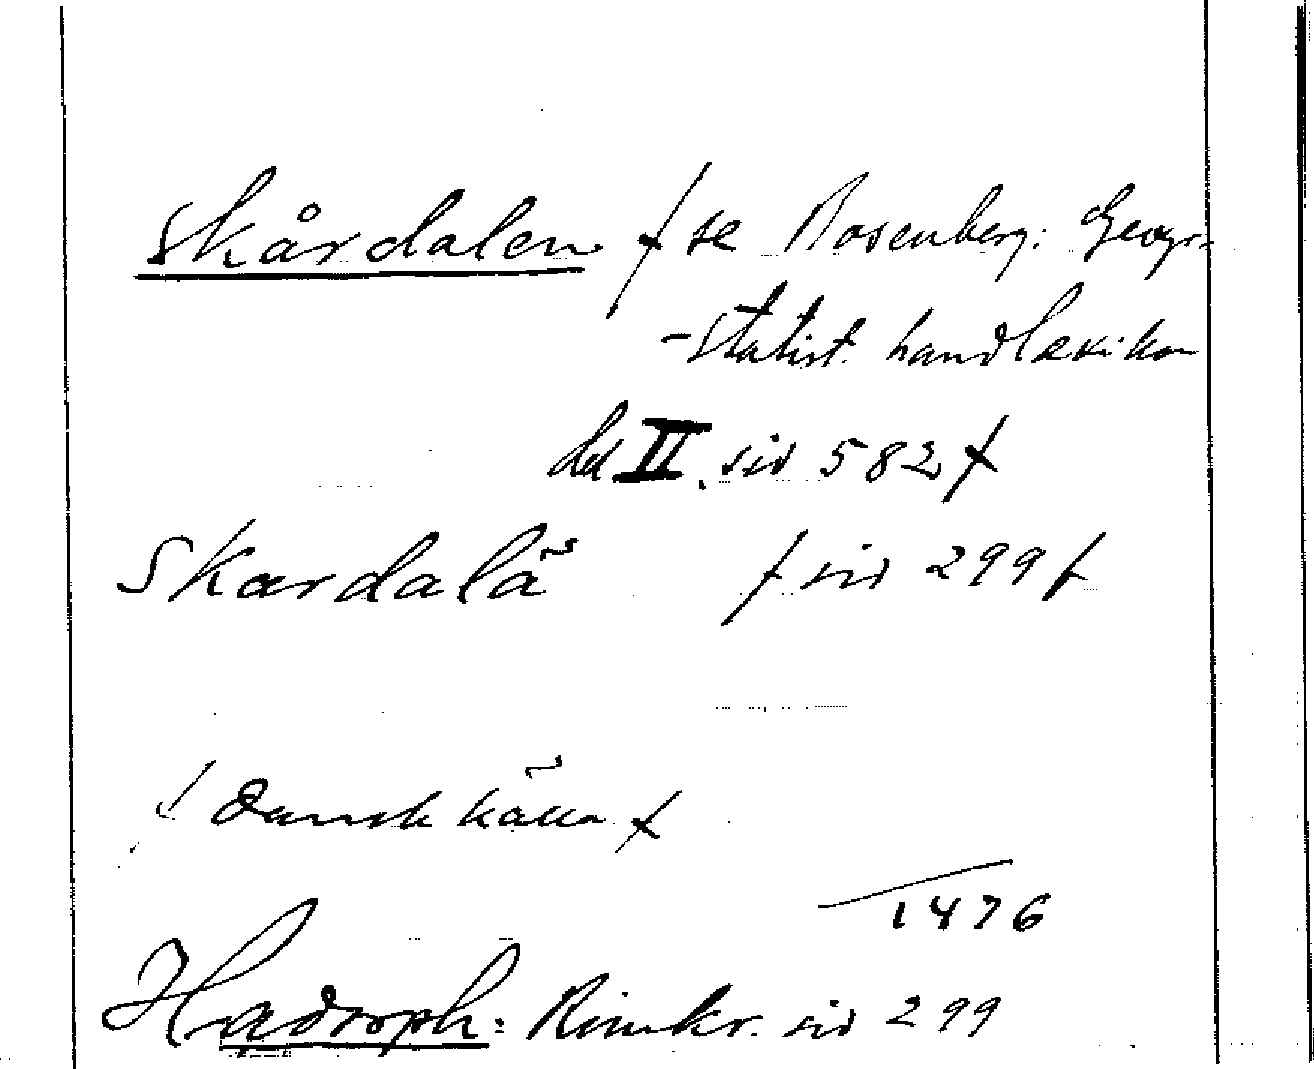 Skårdalen / se Rosenberg: Geogr.
-statist. handlexikon
del II. sid 582 /
Skardalä / sid 299 /
/ Dansk källa /
/1476
Hadorph: Rimkr. sid 299